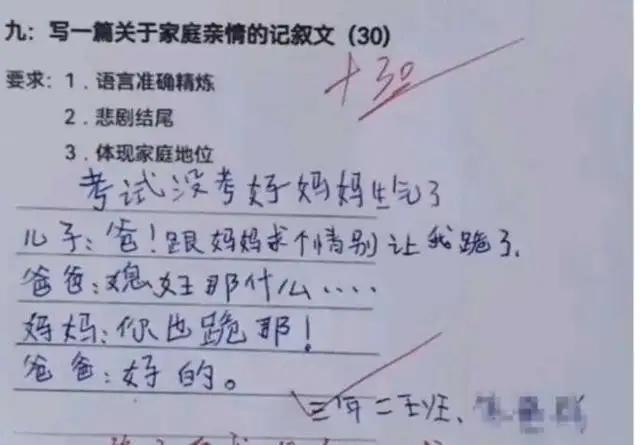 九：写一篇关于家庭亲情的记叙文（30）
+30
要求：1．语言准确精炼
2．悲剧结尾
3．体现家庭地位
考试没考好妈妈生气了
儿子：爸！跟妈妈求个情别让我跪了．
爸爸：媳妇那什么····
妈妈：你也跪那！
爸爸：好的。
三年二班、